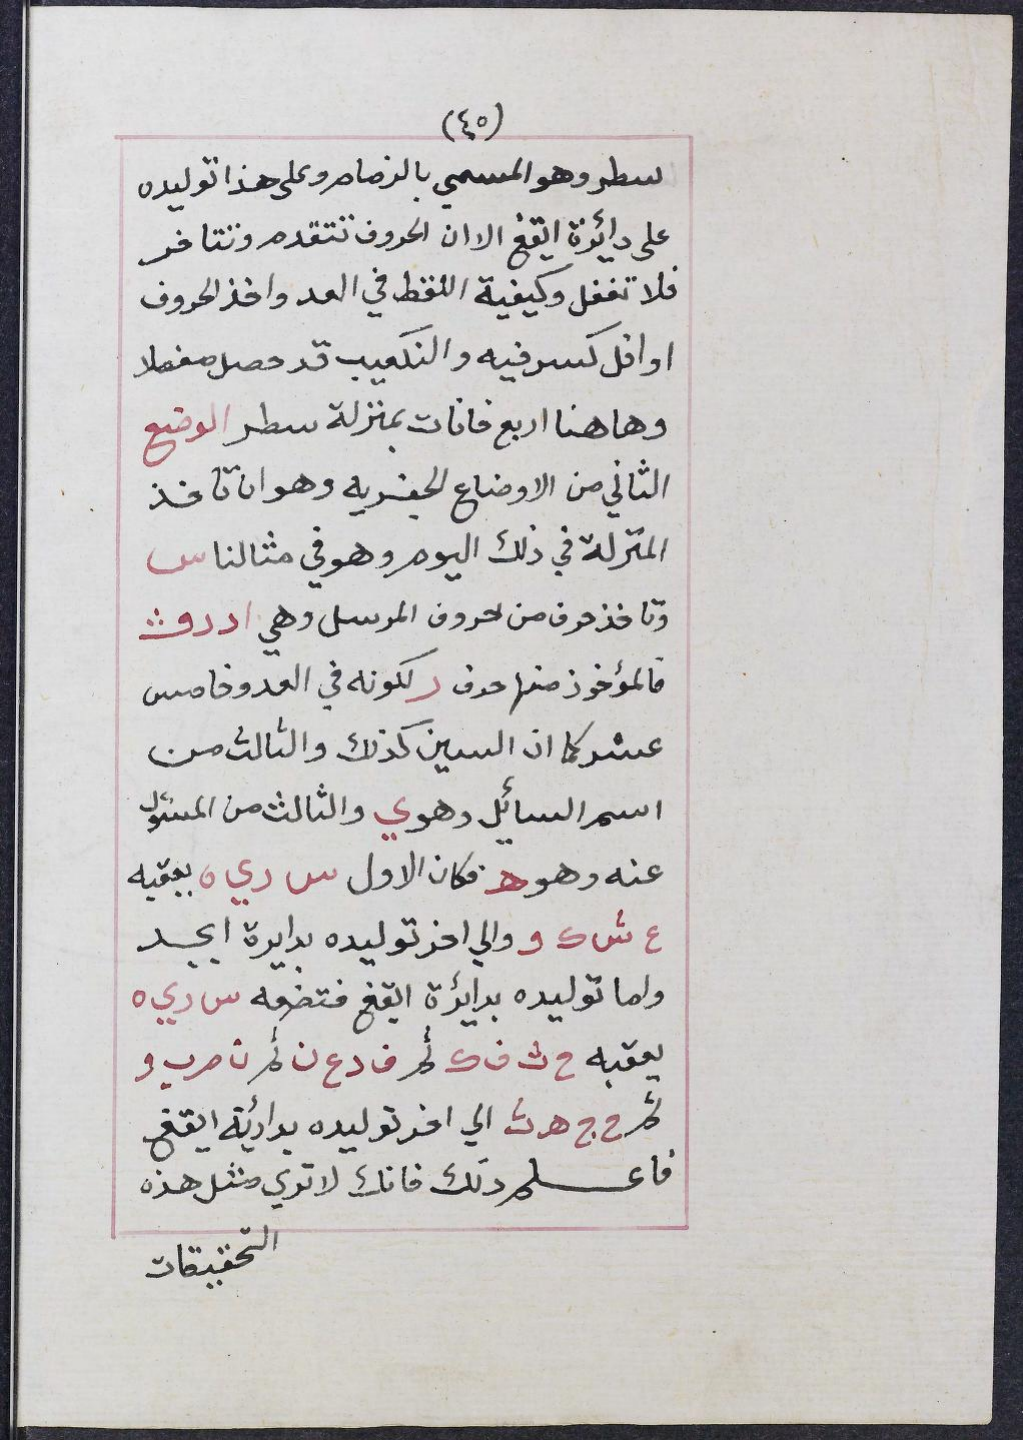 (٤٥)
سطر وهو المسمي بالزمام وعلى هذا توليده
على دائرة ايقغ الا ان الحروف تتقدم وتتاخر
فلا تغفل وكيفية اللقط في العد واخذ الحروف
اوافل كسر فيه والتكعيب قد حصل مفصلا
وها هنا اربع خانات بمنزلة سطر الوضع
الثاني من الاوضاع الجفريه وهو ان تاخذ
المنزلة في ذلك اليوم وهو في مثالنا س
وتاخذ حرف من حروف المرسل وهي
فالمؤخوذ منها حرف ر لكونه في العد وخامس
عشر كما ان السين كذلك والثالث من
اسم السائيل وهو ي والثالث من المسئول
عنه وهو ه فكان الاول س ر ي ه يعقبه
ع ش ك و والي اخر توليده بدايرة ابجد
واما توليده بدائرة ايقغ فتضعه س ر ي ه
يعقبه خ ث ق ك ثم ف د ع ن ثم ت ص ب و
ثم ح ج ه ث الي اخر توليده بدائرة ايقغ
فاعلم ذلك فانك لا تري مثل هذه
التحقيقات